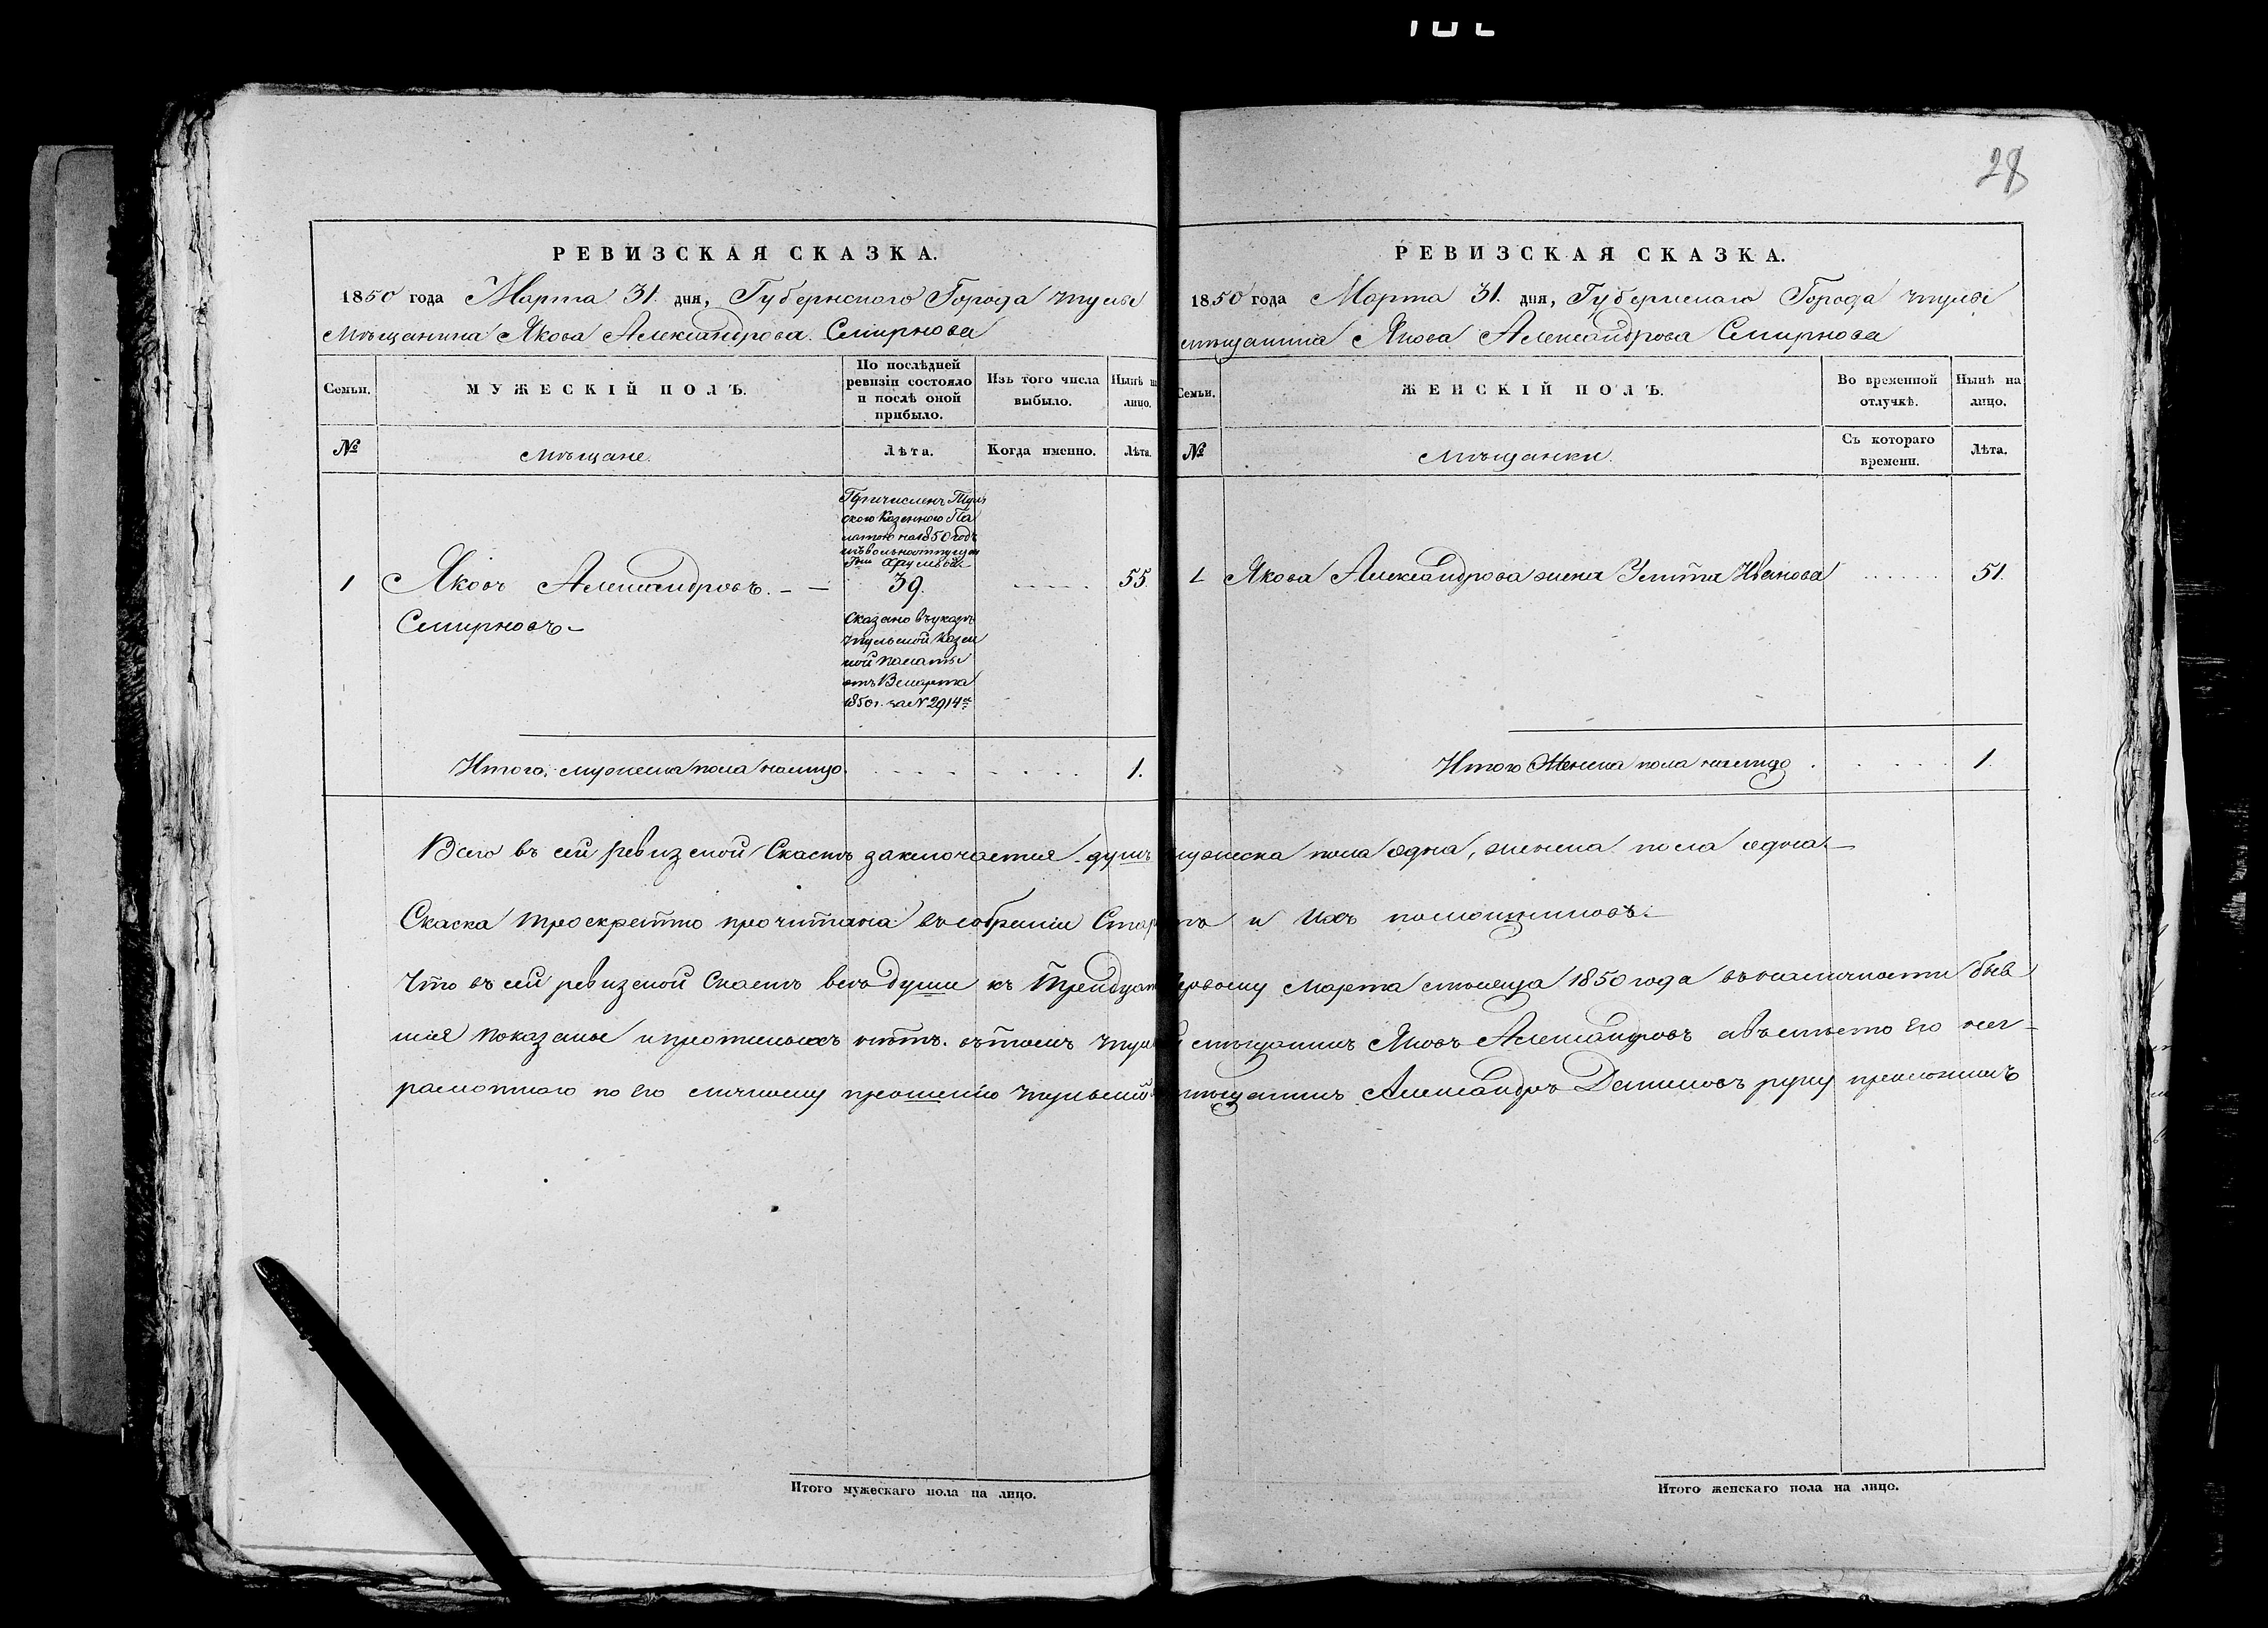 28
РЕВИЗСКАЯ СКАЗКА.
1850 года Марта 31 дня, Губернскаго Города Тулы
Мѣщанина Якова Александрова Смирнова
Семьи.
МУЖЕСКІЙ ПОЛЪ.
По послѣдней ревизіи состояло и послѣ оной прибыло.
Изъ того числа выбыло.
Нынѣ на лицо.
№
Мѣщане.
Лѣта.
Когда именно.
Лѣта.
Причисленъ Туль
скою Казенною Па
латою на 1850 годъ
изъ вольноотпущен
39.
1 Яковъ Александровъ. — — 55.
Смирновъ —
Сказано въ указѣ
Тульской Казен
ной Палаты
отъ Марта
1850 г. за № 2914
Итого, мужеска пола налицо. 1.
РЕВИЗСКАЯ СКАЗКА.
1850 года Марта 31. дня, Губернскаго Города Тулы
мѣщанина Якова Александрова Смирнова
Семьи.
ЖЕНСКІЙ ПОЛЪ.
Во временной отлучкѣ.
Нынѣ на лицо.
№
Мѣщанки.
Съ котораго времени.
Лѣта.
1 Якова Александрова жена Улита Иванова 51.
Итого Женска пола налицо 1.
Всего въ сей ревизской Скаскѣ заключается душъ мужеска пола одна, женска пола одна. —
Скаска троекратно прочитана въ собраніи Старостъ и ихъ помощниковъ. —
Что въ сей ревизской Скаскѣ всѣ души къ Тридцать первому Марта мѣсяца 1850 года въ наличности быв
шія показаны и прописныхъ нѣтъ. въ томъ Тульской мѣщанинъ Яковъ Александровъ а вмѣсто его неег-
рамотнаго по его личному прошенію Тульской мѣщанинъ Александръ Даниловъ руку приложилъ
Итого мужескаго пола на лицо.
Итого женскаго пола на лицо.